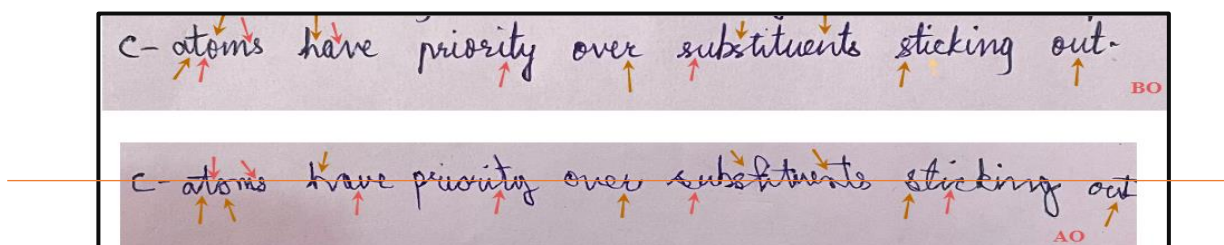 C-atoms have priority over substituents sticking out.
BO
C-atoms have priority over substituents sticking out
AO